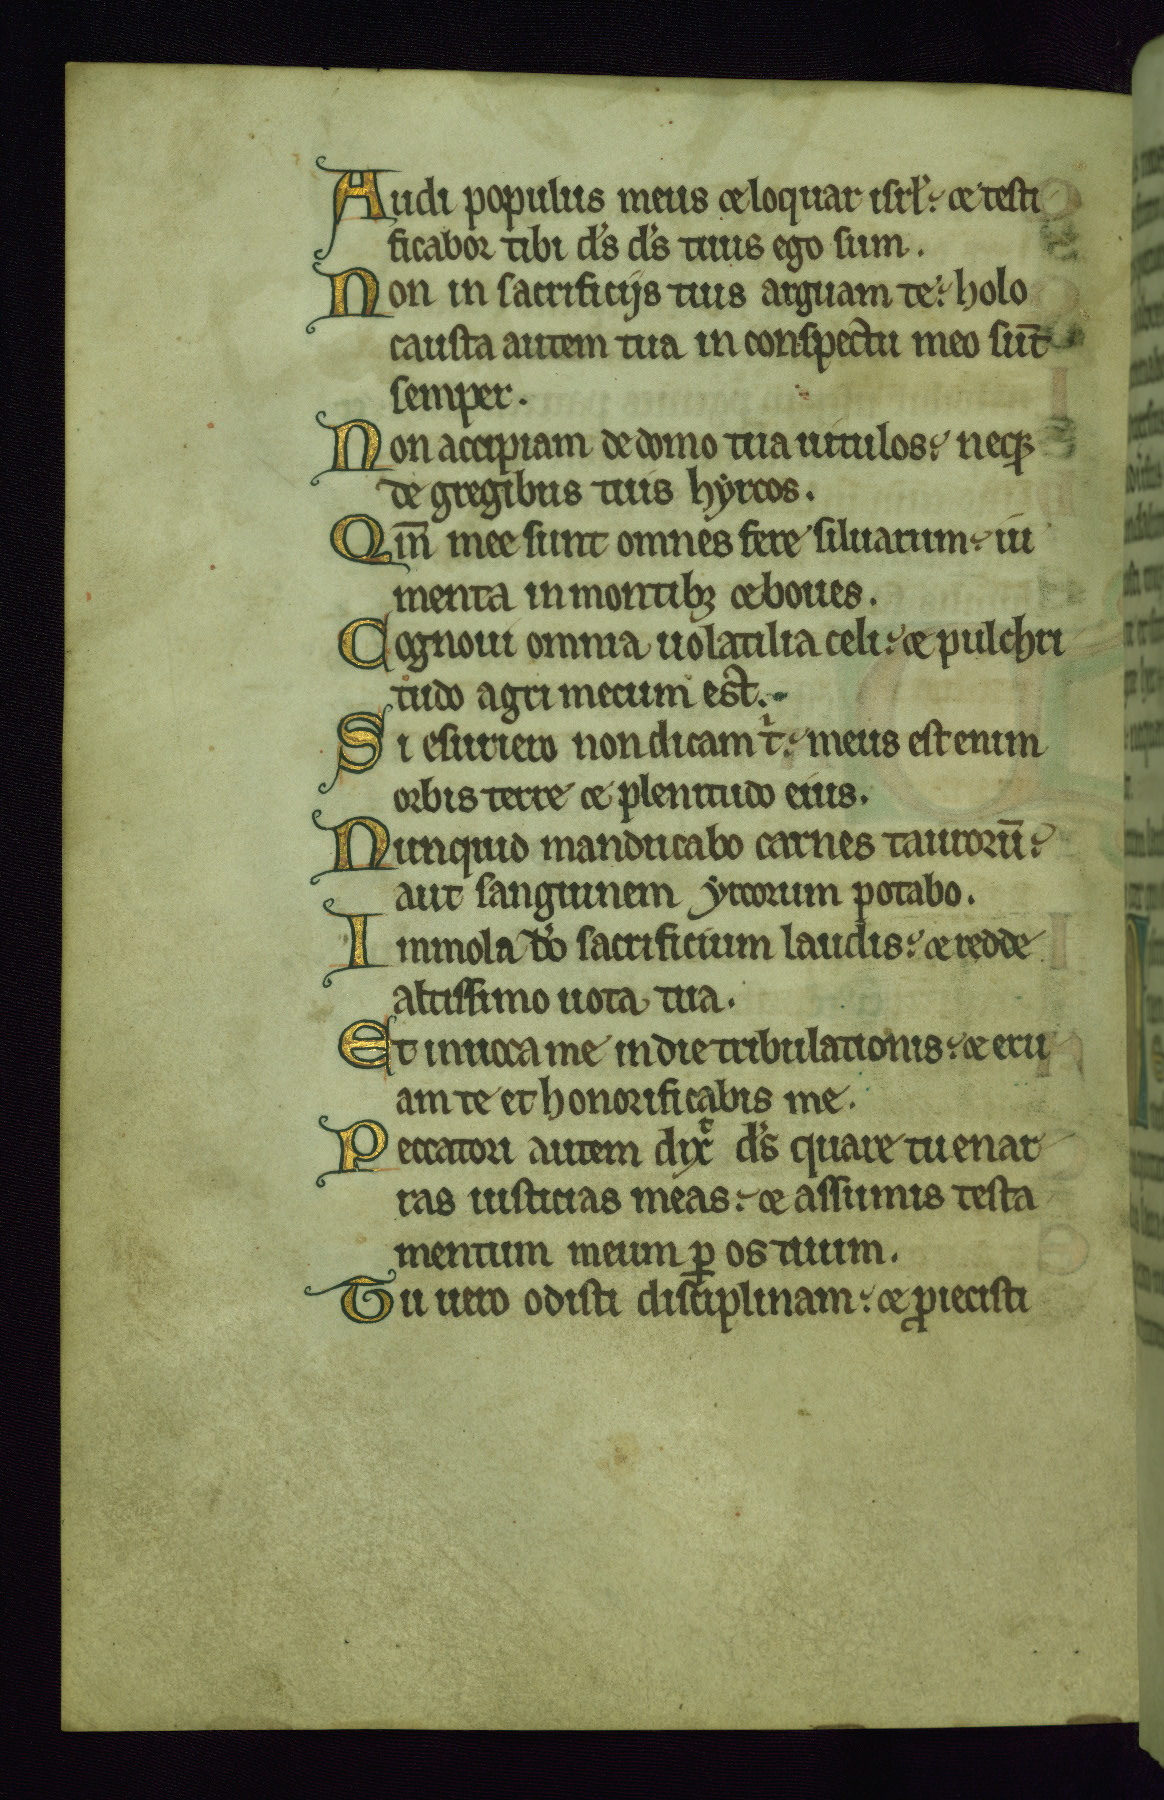 Audi populus meus ⁊ loquar isrl̕: ⁊ testi
ficabor tibi d̕s d̕s tuus ego sum.
Non in sacrificijs tuis arguam te: holo
causta autem tua in conspectu meo sūt
semper.
Non accipiam de domo tua uitulos: neqꝫ
de gregibus tuis hẏrcos.
Qm̄ mee sunt omnes fere siluarum: iu
menta in montibꝫ ⁊ boues.
Cognoui omnia uolatilia celi: ⁊ pulchri
tudo agri mecum est.
Si esuriero non dicam tⁱ: meus est enim
orbis terre ⁊ plenitudo eius.
Nunquid manducabo carnes taurorū:
aut sanguinem yrcorum potabo.
Immola d̕o sacrificium laudis: ⁊ redde
altissimo uota tua.
Et inuoca me in die tribulationis: ⁊ eru
am te et honorificabis me.
Peccatori autem dix̕ d̕s quare tu enar
ras iusticias meas: ⁊ assumis testa
mentum meum ꝑ os tuum.
Tu uero odisti disciplinam: ⁊ ꝓiecisti